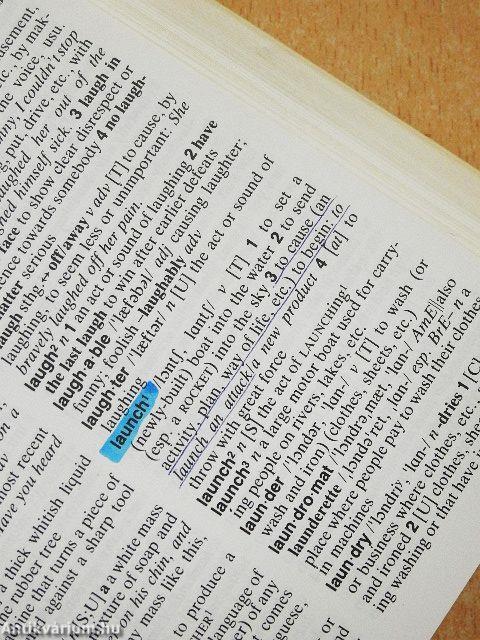 usement,
etc., by mak-
ne voice, usu.
nny, I couldn't stop
g, put, drive, etc., with
aughed her out of the
ghed himself sick. 3 laugh in
face to show clear disrespect or
ance towards somebody 4 no laugh-
matter serious
laugh sthg. ↔ off/away v adv [T] to cause, by
laughing, to seem less or unimportant: She
bravely laughed off her pain.
laugh² n 1 an act or sound of laughing 2 have
the last laugh to win after earlier defeats
laugh·a·ble /ˈlæfəbəl/ adj causing laughter;
funny; foolish -laughably adv
laugh·ter /ˈlæftər/ n [U] the act or sound of
laughing
launch¹ /lɔntʃ, lɑntʃ/ v [T] 1 to set a
(newly-built) boat into the water 2 to send
(esp. a ROCKET) into the sky 3 to cause (an
activity, plan, way of life, etc.) to begin: to
launch an attack/a new product 4 [a] to
throw with great force
launch² n [S] the act of LAUNCHing¹
launch³ n a large motor boat used for carry-
ing people on rivers, lakes, etc.
laun·der /ˈlɔndər, ˈlɑn-/ v [T] to wash (or
wash and iron) (clothes, sheets, etc.)
laun·dro·mat /ˈlɔndrəˌmæt, ˈlɑn-/ AmE||also
launderette /ˌlɔndəˈrɛt, ˌlɑn-/ esp. BrE- n a
place where people pay to wash their clothes
in machines
laun·dry /ˈlɔndriʸ, ˈlɑn-/ n -dries 1 [C]
or business where clothes, etc.,
and ironed 2 [U] clothes, she
ing washing or that have
on a
most recent
have you heard
thick whitish liquid
e rubber tree
that turns a piece of
against a sharp tool
[U] a a white mass
re of soap and
his chin. and
y mass like this,
to produce a
anguage of
er) of any
comes
uese,
or
Antikvarium.hu